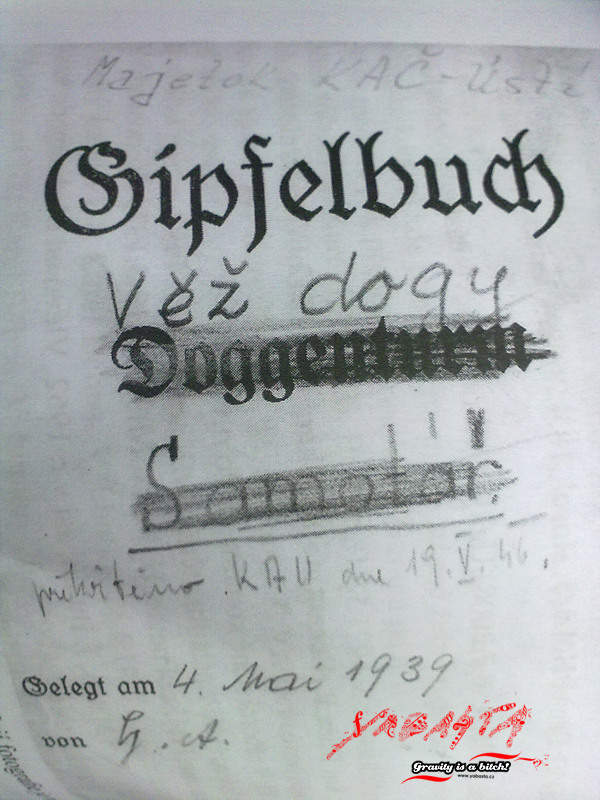 Majetek KAČ-Ústí
Gipfelbuch
Věž dogy
Doggenturm
Samotář
překřtěno KAU dne 19.V.46.
Gelegt am 4. Mai 1939
von G. A.
Gravity is a bitch!
www.yabasta.cz